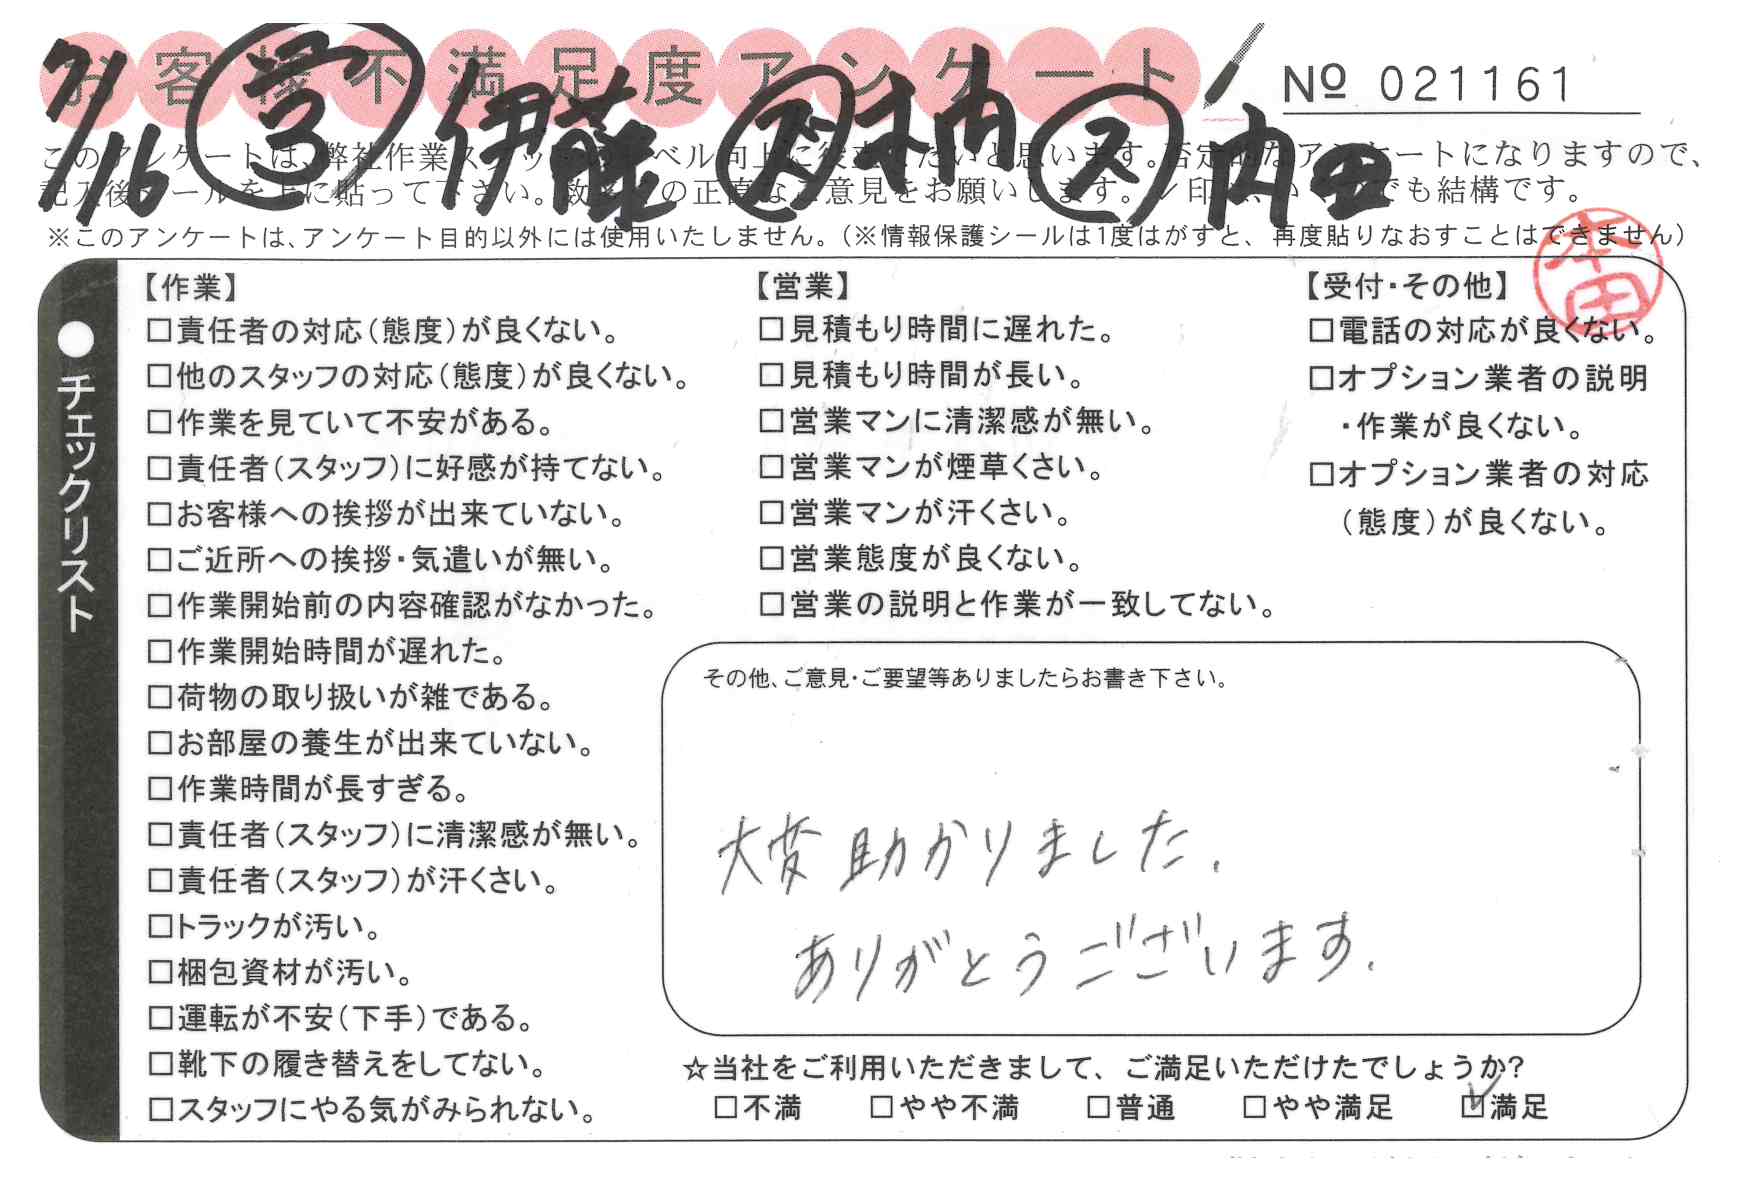 お客様不満足度アンケート
№ 021161
7/16 営 伊藤 ス 木村 ス 内田
このアンケートは、弊社作業スタッフのレベル向上に役立てたいと思います。否定的なアンケートになりますので、
記入後シールを上に貼って下さい。数多くの正直なご意見をお願いします。✓印は、いくつでも結構です。
※このアンケートは、アンケート目的以外には使用いたしません。（※情報保護シールは1度はがすと、再度貼りなおすことはできません）
本田
●チェックリスト
【作業】
□責任者の対応（態度）が良くない。
□他のスタッフの対応（態度）が良くない。
□作業を見ていて不安がある。
□責任者（スタッフ）に好感が持てない。
□お客様への挨拶が出来ていない。
□ご近所への挨拶・気遣いが無い。
□作業開始前の内容確認がなかった。
□作業開始時間が遅れた。
□荷物の取り扱いが雑である。
□お部屋の養生が出来ていない。
□作業時間が長すぎる。
□責任者（スタッフ）に清潔感が無い。
□責任者（スタッフ）が汗くさい。
□トラックが汚い。
□梱包資材が汚い。
□運転が不安（下手）である。
□靴下の履き替えをしてない。
□スタッフにやる気がみられない。
【営業】
□見積もり時間に遅れた。
□見積もり時間が長い。
□営業マンに清潔感が無い。
□営業マンが煙草くさい。
□営業マンが汗くさい。
□営業態度が良くない。
□営業の説明と作業が一致してない。
【受付・その他】
□電話の対応が良くない。
□オプション業者の説明
・作業が良くない。
□オプション業者の対応
（態度）が良くない。
その他、ご意見・ご要望等ありましたらお書き下さい。
大変助かりました.
ありがとうございます.
☆当社をご利用いただきまして、ご満足いただけたでしょうか?
□不満 □やや不満 □普通 □やや満足 ☑満足